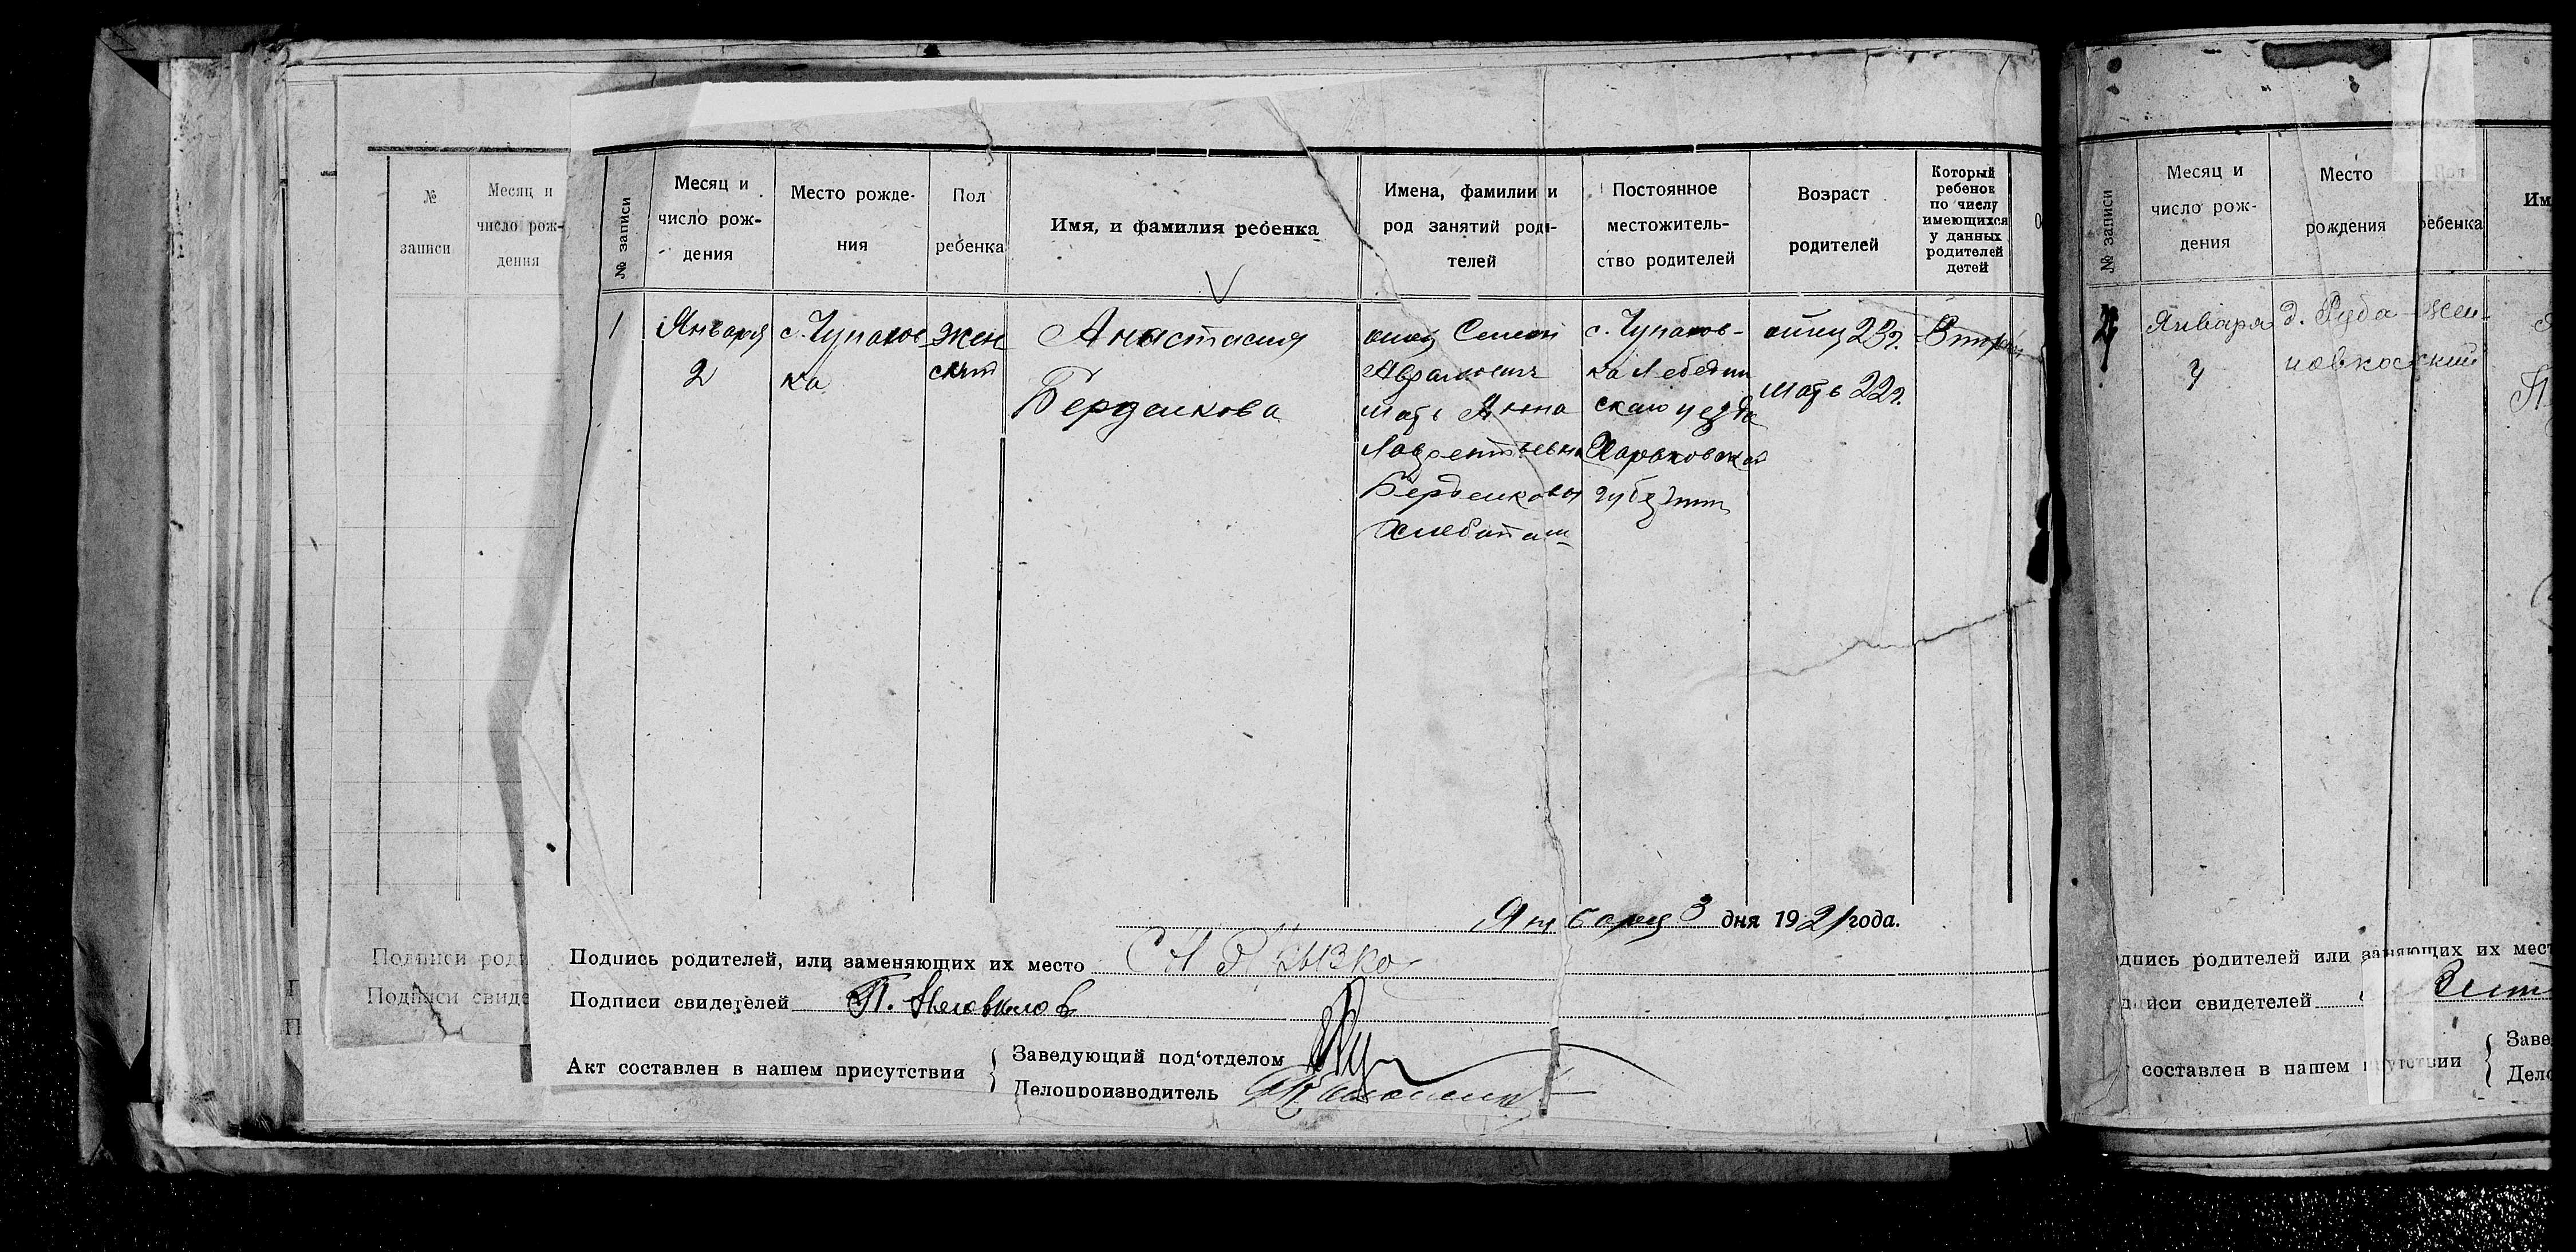 № записи
Месяц и число рож-
дения
№ записи
Месяц и
число рож-
дения
Место рожде-
ния
Пол
ребенка
Имя, и фамилия ребенка
Имена, фамилии и
род занятий роди-
телей
Постоянное
местожитель-
ство родителей
Возраст
родителей
Который
ребенок
по числу
имеющихся
у данных
родителей
детей
1
Января
2
с. Чупахов-
ка
Жен
ский
Анастасия
Берденкова
отец Семен
Аврамович
мать Анна
Лаврентьевна
Берденковы
с. Чупахов-
ка Лебедин
ского уезда
Харьковской
губернии
отец 23 г.
мать 22 г.
Второй
Января 3 дня 1921 года.
Подпись родителей, или заменяющих их место
Подписи свидетелей П.
Акт составлен в нашем присутствии
Заведующий под'отделом
Делопроизводитель
Подписи роди
Подписи свиде
№ записи
Месяц и
число рож-
дения
Место
рождения
Пол
ребенка
Им
Января
д. Руба
новка
Жен-
ский
дпись родителей или заменяющих их мест
дписи свидетелей
составлен в нашем присутствии
Заве
Дело